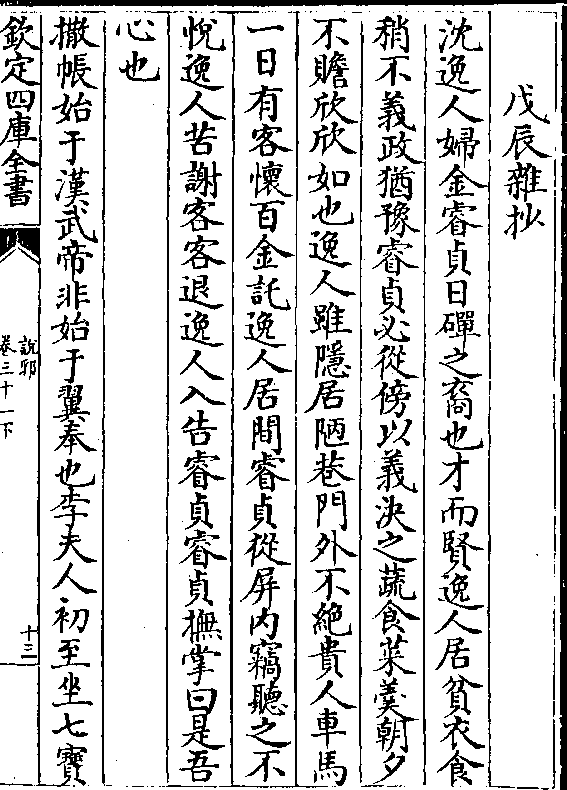 戊辰雜抄
沈逸人婦金睿貞日磾之裔也才而賢逸人居貧衣食
稍不義政猶豫睿貞必從傍以義決之蔬食菜羮朝夕
不贍欣欣如也逸人雖隱居陋巷門外不絶貴人車馬
一日有客懷百金託逸人居間睿貞從屏内竊聽之不
悅逸人苦謝客客退逸人入告睿貞睿貞撫掌曰是吾
心也
撒帳始于漢武帝非始于翼奉也李夫人初至坐七寳
欽定四庫全書
說郛
卷三十一下
十三